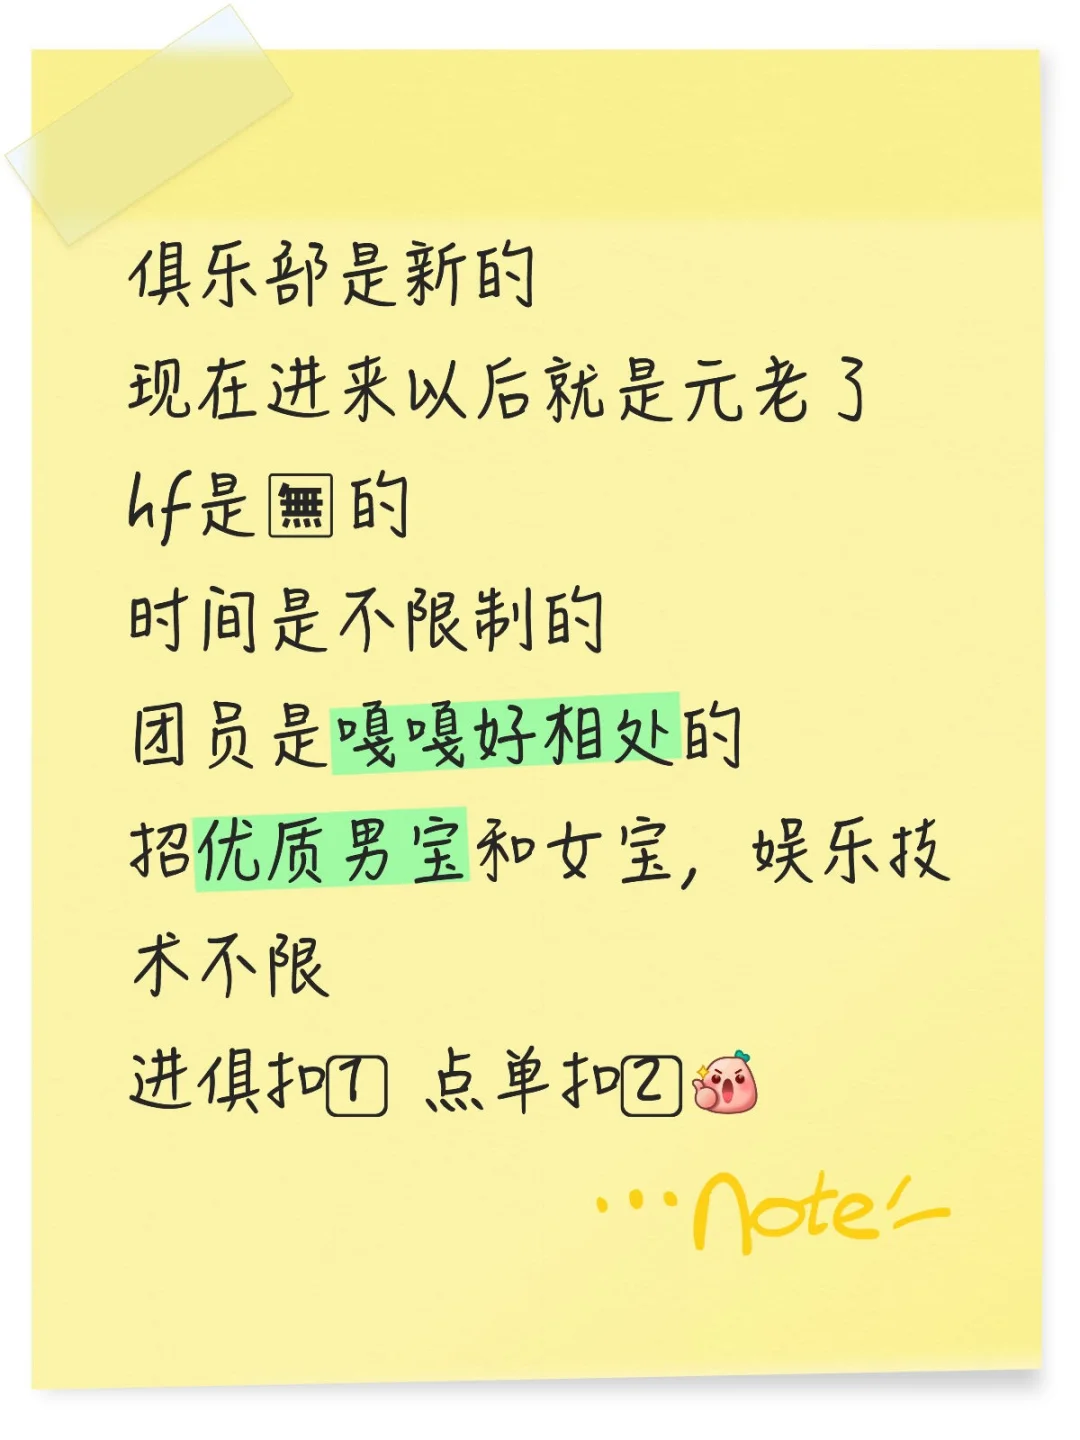 俱乐部是新的
现在进来以后就是元老了
hf是🈚的
时间是不限制的
团员是嘎嘎好相处的
招优质男宝和女宝，娱乐技
术不限
进俱扣1️⃣ 点单扣2️⃣
...note